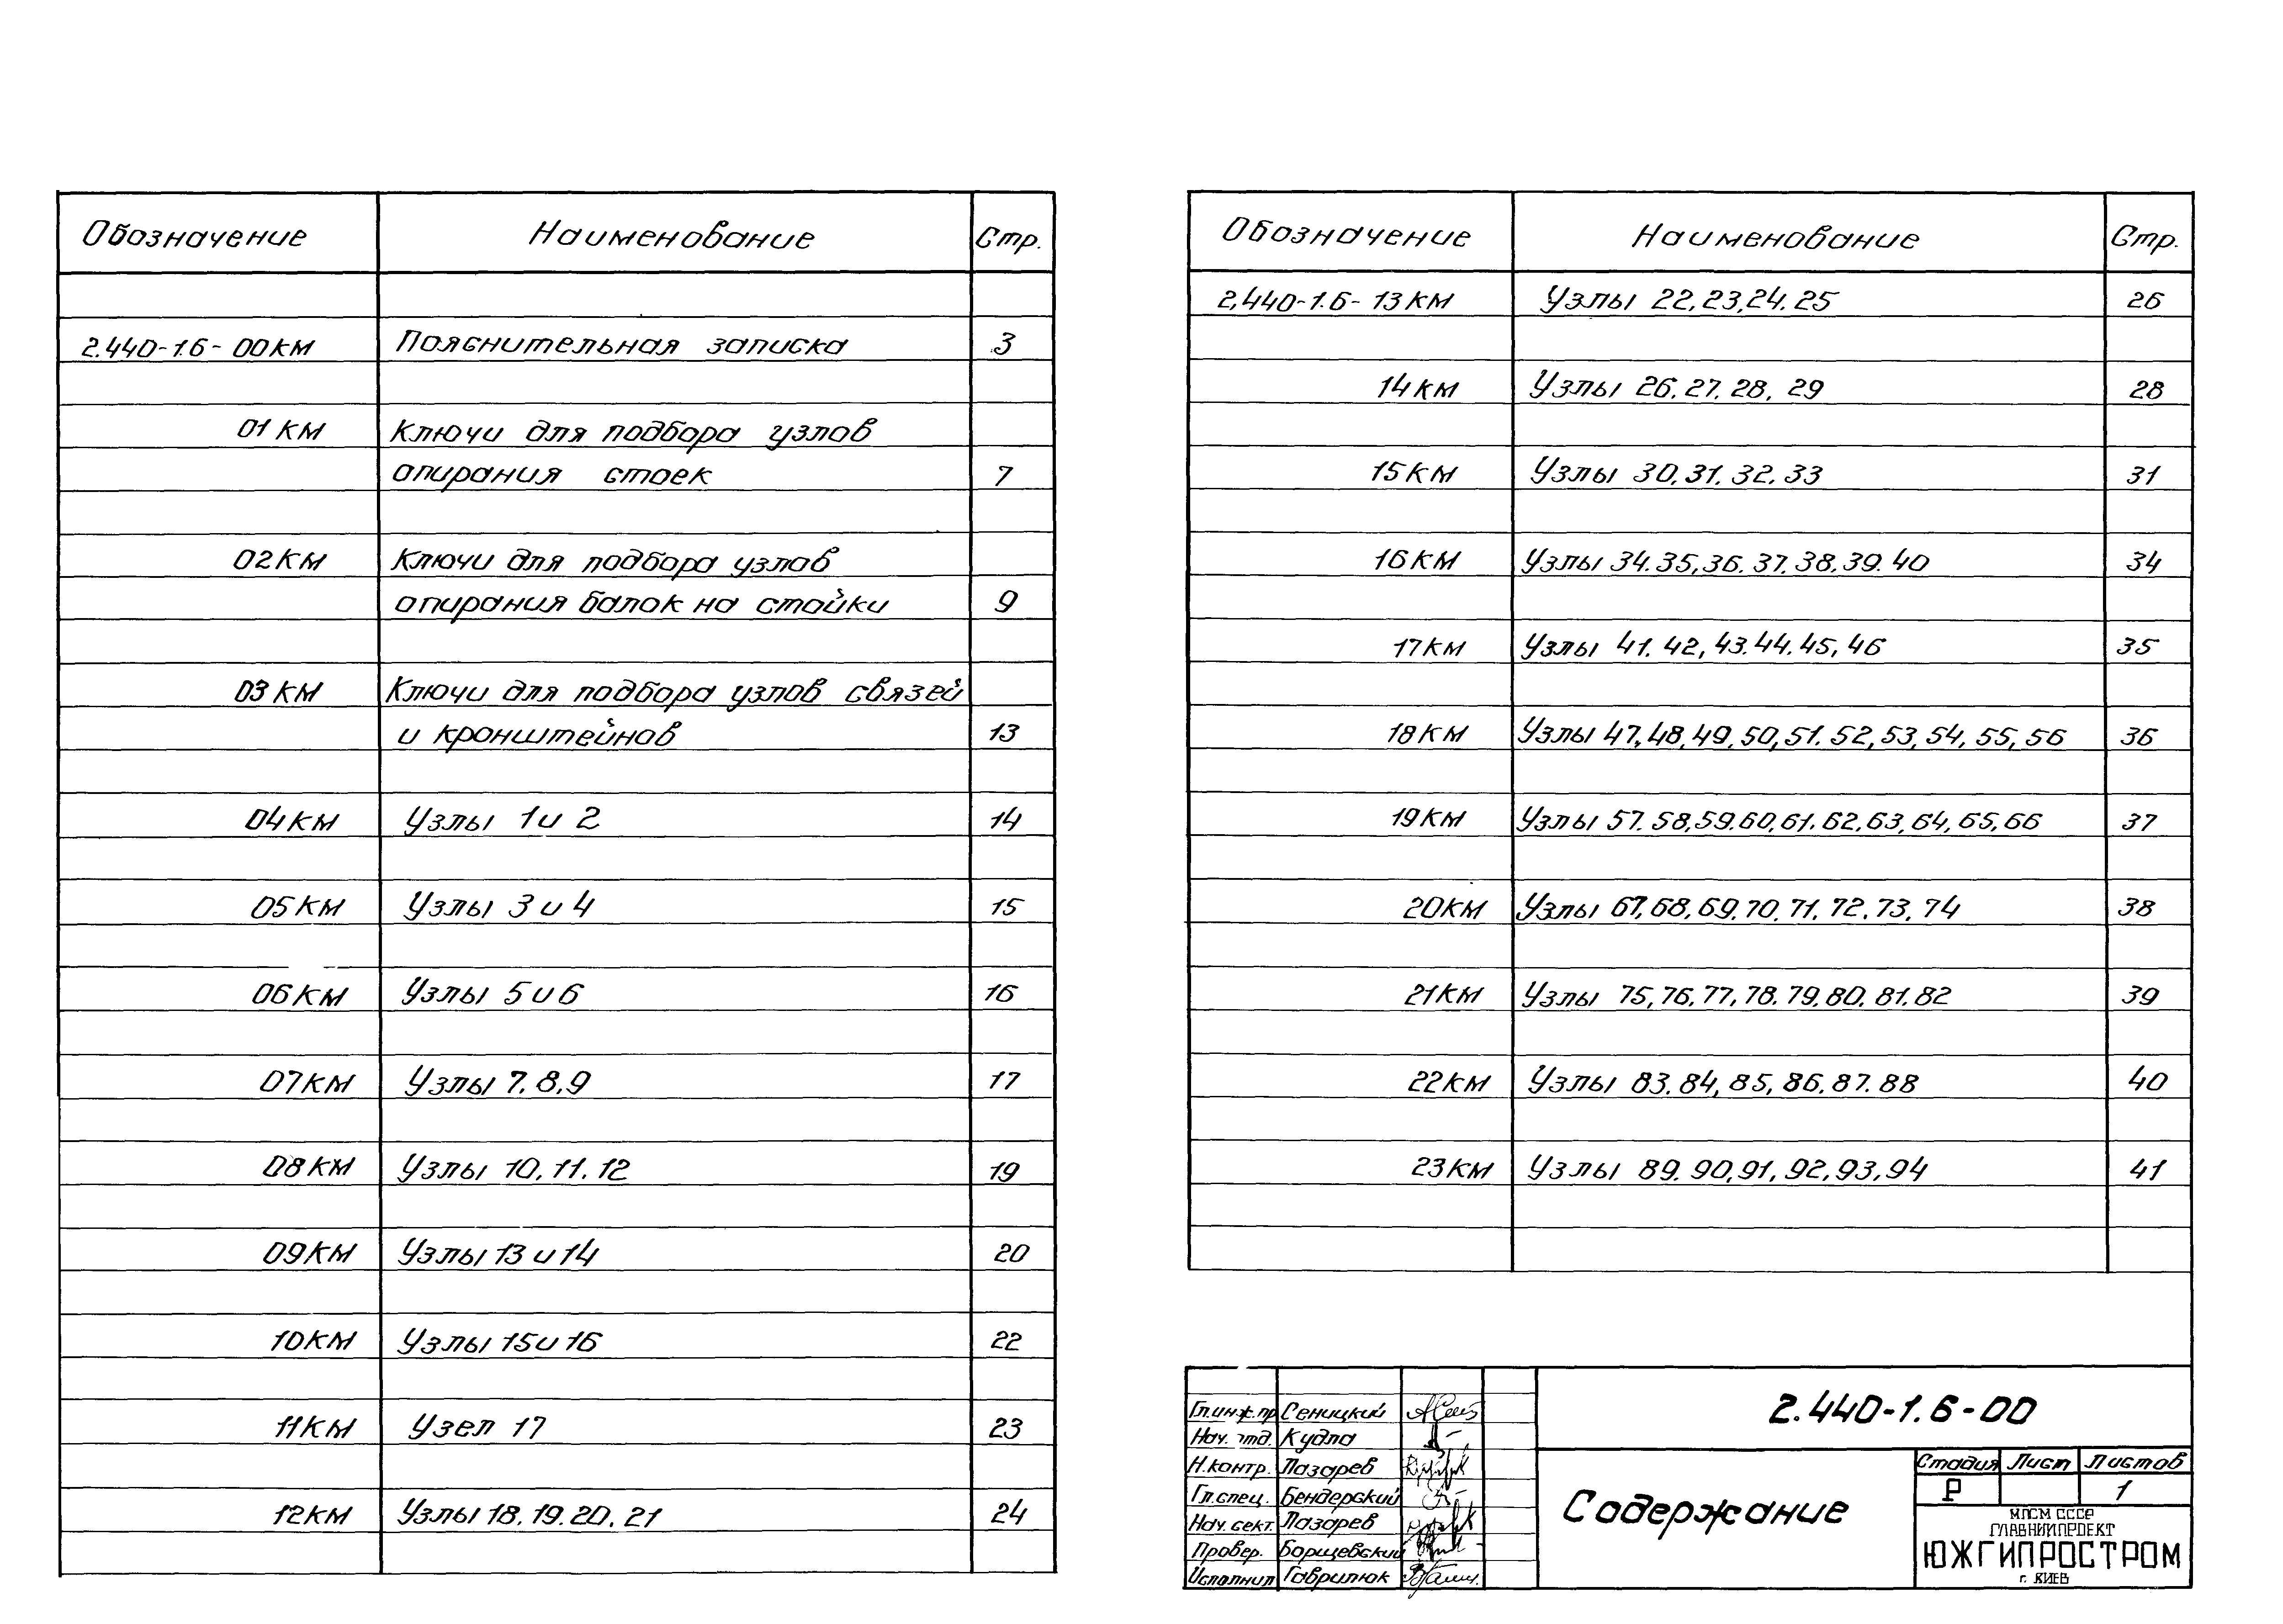 Обозначение Наименование Стр.
2.440-1.6- 00КМ Пояснительная записка 3
01КМ Ключи для подбора узлов
опирания стоек 7
02КМ Ключи для подбора узлов
опирания балок на стойки 9
03КМ Ключи для подбора узлов связей
и кронштейнов 13
04КМ Узлы 1 и 2 14
05КМ Узлы 3 и 4 15
06КМ Узлы 5 и 6 16
07КМ Узлы 7, 8, 9 17
08КМ Узлы 10, 11, 12 19
09КМ Узлы 13 и 14 20
10КМ Узлы 15 и 16 22
11КМ Узел 17 23
12КМ Узлы 18, 19, 20, 21 24
Обозначение Наименование Стр.
2.440-1.6- 13КМ Узлы 22, 23, 24, 25 26
14КМ Узлы 26, 27, 28, 29 28
15КМ Узлы 30, 31, 32, 33 31
16КМ Узлы 34, 35, 36, 37, 38, 39, 40 34
17КМ Узлы 41, 42, 43, 44, 45, 46 35
18КМ Узлы 47, 48, 49, 50, 51, 52, 53, 54, 55, 56 36
19КМ Узлы 57, 58, 59, 60, 61, 62, 63, 64, 65, 66 37
20КМ Узлы 67, 68, 69, 70, 71, 72, 73, 74 38
21КМ Узлы 75, 76, 77, 78, 79, 80, 81, 82 39
22КМ Узлы 83, 84, 85, 86, 87, 88 40
23КМ Узлы 89, 90, 91, 92, 93, 94 41
2.440-1.6-00
Гл.инж.пр Сеницкий
Нач. отд. Кудла
Н.контр. Лазарев
Гл.спец. Бендерский
Нач.сект. Лазарев
Провер. Борщевский
Исполнил Гаврилюк
Содержание
Стадия Лист Листов
Р 1
МПСМ СССР
ГЛАВНИИПРОЕКТ
ЮЖГИПРОСТРОМ
г. КИЕВ